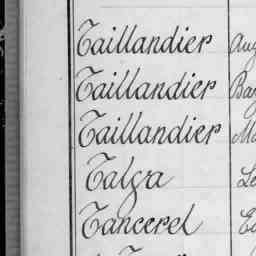 Taillandier Aug
Taillandier Bar
Taillandier
Talga
Tancerel